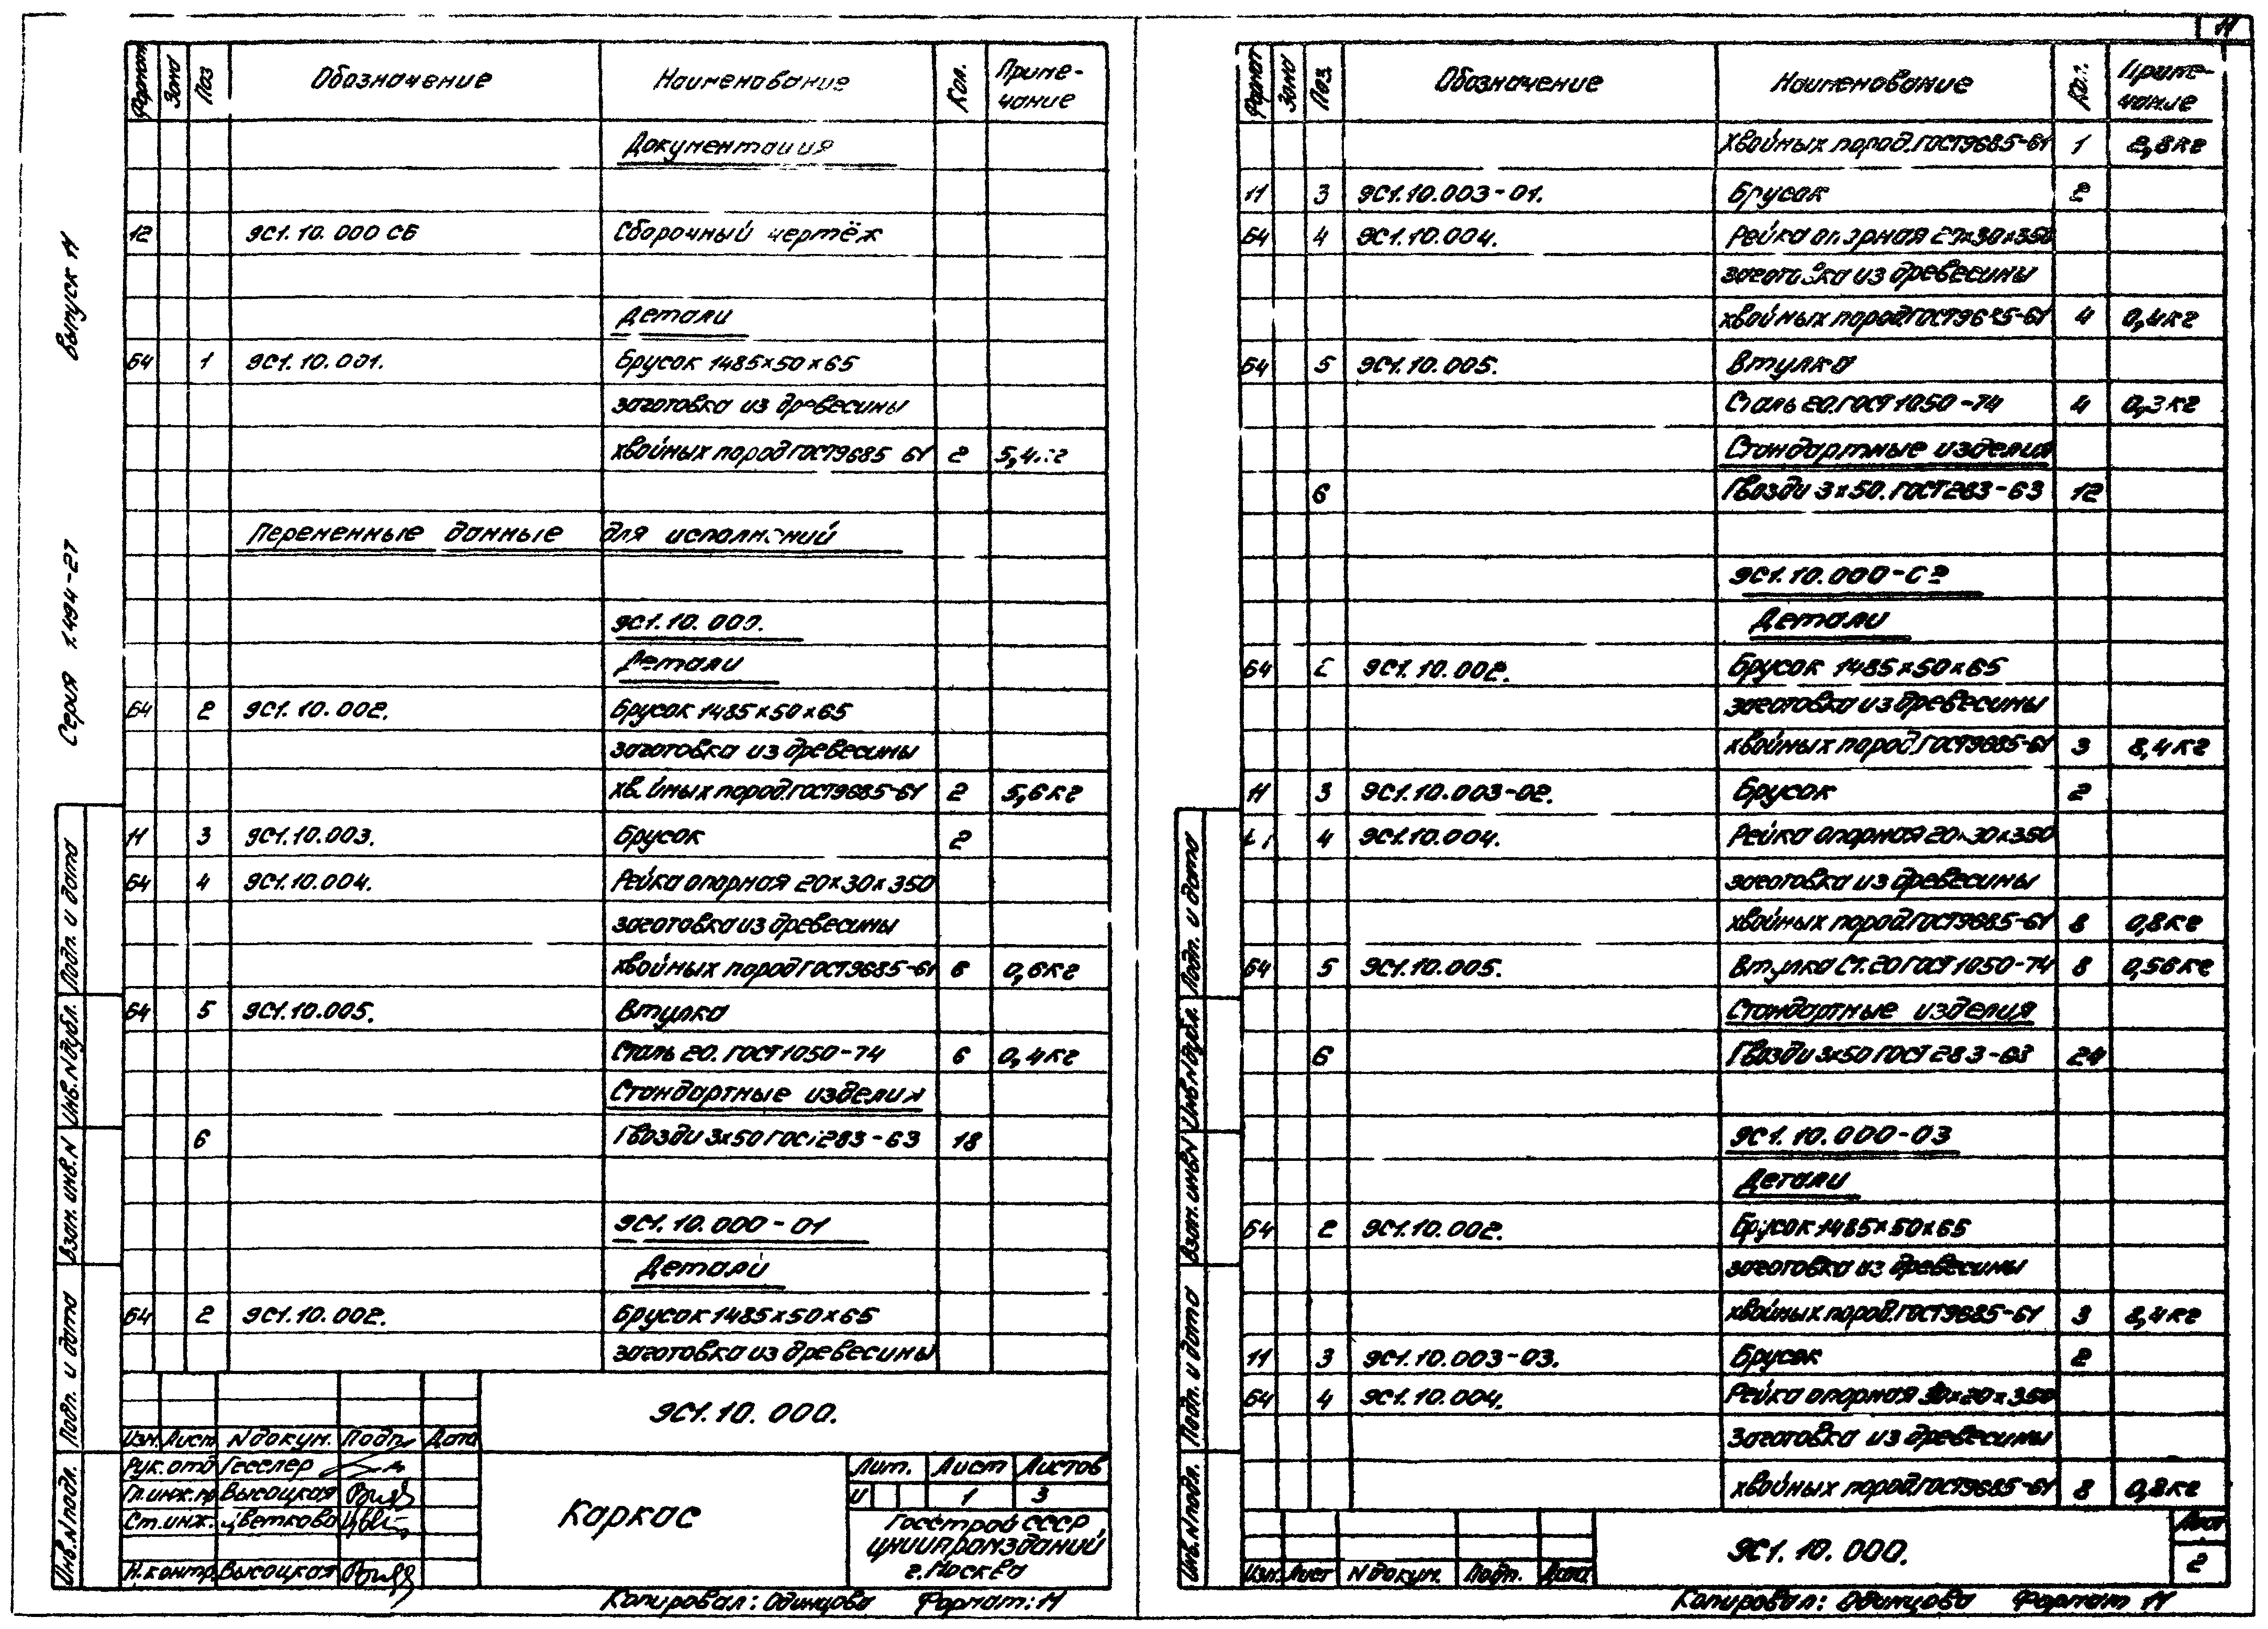 11
Выпуск 11
Серия 1.494-27
Формат Зона Поз Обозначение Наименование Кол. Приме-чание
Документация
12 9С1.10.000 СБ Сборочный чертёж
Детали
Б4 1 9С1.10.001. Брусок 1485×50×65
заготовка из древесины
хвойных пород ГОСТ9685 61 2 5,4кг
Переменные данные для исполнений
9С1.10.000.
Детали
Б4 2 9С1.10.002. Брусок 1485×50×65
заготовка из древесины
хвойных пород.ГОСТ9685-61 2 5,6кг
11 3 9С1.10.003. Брусок 2
Б4 4 9С1.10.004. Рейка опорная 20×30×350
заготовка из древесины
хвойных пород ГОСТ9685-61 6 0,6кг
Б4 5 9С1.10.005. Втулка
Сталь 20. ГОСТ1050-74 6 0,4кг
Стандартные изделия
6 Гвозди 3х50 ГОСТ283-63 18
9С1.10.000-01
Детали
Б4 2 9С1.10.002. Брусок 1485×50×65
заготовка из древесины
9С1.10.000.
Изм. Лист N докум. Подп. Дата
Рук.отд Гесслер
Гл.инж.пр. Высоцкая
Ст.инж. Цветкова
Н.контр. Высоцкая
Каркас
Лит. Лист Листов
И 1 3
Госстрой СССР
ЦНИИПРОМЗДАНИЙ
г.Москва
Копировал: Одинцова Формат: 11
Инв.N подл. Подп. и дата Взам. инв.N Инв.N дубл. Подп. и дата
Формат Зона Поз. Обозначение Наименование Кол. Приме-чание
хвойных пород.ГОСТ9685-61 1 2,8кг
11 3 9С1.10.003-01. Брусок 2
Б4 4 9С1.10.004. Рейка опорная 20×30×350
заготовка из древесины
хвойных пород.ГОСТ9685-61 4 0,4кг
Б4 5 9С1.10.005. Втулка
Сталь 20.ГОСТ1050-74 4 0,3кг
Стандартные изделия
6 Гвозди 3×50.ГОСТ283-63 12
9С1.10.000-02
Детали
Б4 2 9С1.10.002. Брусок 1485×50×65
заготовка из древесины
хвойных пород.ГОСТ9685-61 3 8,4кг
11 3 9С1.10.003-02. Брусок 2
Б4 4 9С1.10.004. Рейка опорная 20×30×350
заготовка из древесины
хвойных пород.ГОСТ9685-61 8 0,8кг
Б4 5 9С1.10.005. Втулка Ст.20 ГОСТ1050-74 8 0,56кг
Стандартные изделия
6 Гвозди 3×50 ГОСТ 283-63 24
9С1.10.000-03
Детали
Б4 2 9С1.10.002. Брусок 1485×50×65
заготовка из древесины
хвойных пород.ГОСТ9685-61 3 8,4кг
11 3 9С1.10.003-03. Брусок 2
Б4 4 9С1.10.004. Рейка опорная 30×20×350
Заготовка из древесины
хвойных пород.ГОСТ9685-61 8 0,8кг
Изм. Лист N докум. Подп. Дата
9С1.10.000.
Лист
2
Копировал: Одинцова Формат 11
Инв.N подл. Подп. и дата Взам. инв.N Инв.N дубл. Подп. и дата